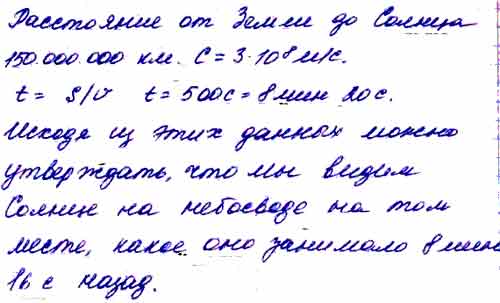 Расстояние от Земли до Солнца
150.000.000 км. С = 3·10⁸ м/с.
t = S/v t = 500с = 8 мин 20с.
Исходя из этих данных можно
утверждать, что мы видим
Солнце на небосводе на том
месте, какое оно занимало 8 мин
16 с назад.